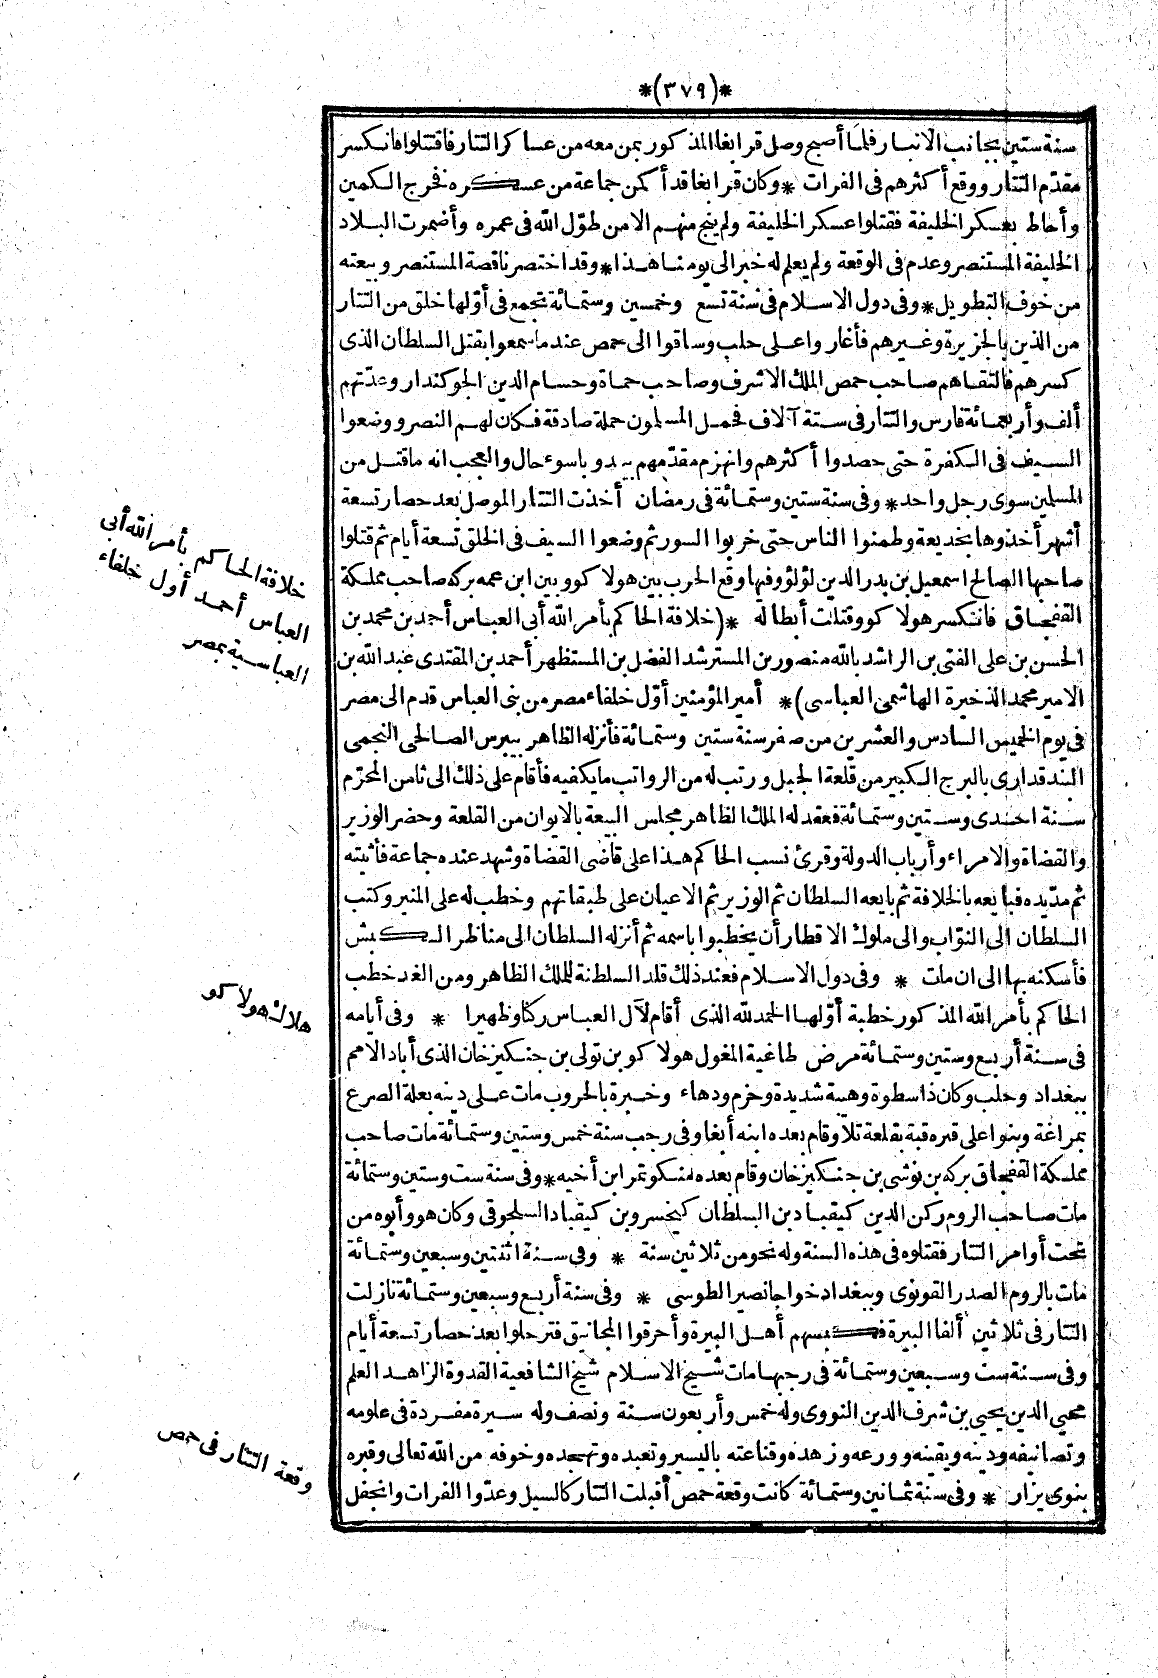 *(٣٧٩)*
سنة ستين بجانب الانبار فلما أصبح وصل قرابغا المذكور بمن معه من عساكر التتار فاقتتلوا فانكسر
مقدّم التتار ووقع أكثرهم فى الفرات * وكان قرابغا قد أكمن جماعة من عسكره فخرج الكمين
وأحاط بعسكر الخليفة فقتلوا عسكر الخليفة ولم ينج منهم الا من طوّل الله فى عمره وأضمرت البلاد
الخليفة المستنصر وعدم فى الوقعة ولم يعلم له خبر الى يومنا هذا * وقد اختصرنا قصة المستنصر وبيعته
من خوف التطويل * وفى دول الاسلام فى سنة تسع وخمسين وستمائة تجمع فى أوّلها خلق من التتار
من الذين بالجزيرة وغيرهم فأغاروا على حلب وساقوا الى حمص عندما سمعوا بقتل السلطان الذى
كسرهم فالتقاهم صاحب حمص الملك الاشرف وصاحب حماة وحسام الدين الجوكندار وعدّتهم
ألف وأربعمائة فارس والتتار فى ستة آلاف فحمل المسلمون حملة صادقة فكان لهم النصر ووضعوا
السيف فى الكفرة حتى حصدوا أكثرهم وانهزم مقدّمهم بيدو باسوء حال والعجب انه ما قتل من
المسلمين سوى رجل واحد * وفى سنة ستين وستمائة فى رمضان أخذت التتار الموصل بعد حصار تسعة
أشهر أخذوها بخديعة وطمنوا الناس حتى خربوا السور ثم وضعوا السيف فى الخلق تسعة أيام ثم قتلوا
صاحبها الصالح اسمعيل بن بدر الدين لؤلؤ وفيها وقع الحرب بين هولاكو وبين ابن عمه بركه صاحب مملكة
القفجاق فانكسر هولاكو وقتلت أبطاله * (خلافة الحاكم بأمر الله أبى العباس أحمد بن محمد بن
الحسن بن على الفتى بن الراشد بالله منصور بن المسترشد الفضل بن المستظهر أحمد بن المقتدى عبد الله بن
الامير محمد الذخيرة الهاشمى العباسى) * أمير المؤمنين أوّل خلفاء مصر من بنى العباس قدم الى مصر
فى يوم الخميس السادس والعشرين من صفر سنة ستين وستمائة فأنزله الظاهر بيبرس الصالحى النجمى
البندقدارى بالبرج الكبير من قلعة الجبل ورتب له من الرواتب ما يكفيه فأقام على ذلك الى ثامن المحرّم
سنة احدى وستين وستمائة فعقد له الملك الظاهر مجلس البيعة بالايوان من القلعة وحضر الوزير
والقضاة والامراء وأرباب الدولة وقرئ نسب الحاكم هذا على قاضى القضاة وشهد عنده جماعة فأثبته
ثم مدّ يده فبايعه بالخلافة ثم بايعه السلطان ثم الوزير ثم الاعيان على طبقاتهم وخطب له على المنبر وكتب
السلطان الى النوّاب والى ملوك الاقطار أن يخطبوا باسمه ثم أنزله السلطان الى مناظر الكبش
فأسكنه بها الى ان مات * وفى دول الاسلام فعند ذلك قلد السلطنة للملك الظاهر ومن الغد خطب
الحاكم بأمر الله المذكور خطبة أوّلها الحمد لله الذى أقام لآل العباس ركنا وظهيرا * وفى أيامه
فى سنة أربع وستين وستمائة مرض طاغية المغول هولاكو بن تولى بن جنكيزخان الذى أباد الامم
ببغداد وحلب وكان ذا سطوة وهيبة شديدة وحزم ودهاء وخبرة بالحروب مات على دينه بعلة الصرع
بمراغة وبنوا على قبره قبة بقلعة تلا وقام بعده ابنه أبغا وفى رجب سنة خمس وستين وستمائة مات صاحب
مملكة القفجاق بركه بن توشى بن جنكيزخان وقام بعده منكوتمر ابن أخيه * وفى سنة ست وستين وستمائة
مات صاحب الروم ركن الدين كيقباد بن السلطان كيخسرو بن كيقباد السلجوقى وكان هو وأبوه من
تحت أوامر التتار فقتلوه فى هذه السنة وله نحو من ثلاثين سنة * وفى سنة اثنتين وسبعين وستمائة
مات بالروم الصدر القونوى وببغداد خواجا نصير الطوسى * وفى سنة أربع وسبعين وستمائة نازلت
التتار فى ثلاثين ألفا البيرة فكبسهم أهل البيرة وأحرقوا المجانيق فترحلوا بعد حصار تسعة أيام
وفى سنة ست وسبعين وستمائة فى رجبها مات شيخ الاسلام شيخ الشافعية القدوة الزاهد العلم
محيى الدين يحيى بن شرف الدين النووى وله خمس وأربعون سنة ونصف وله سيرة مفردة فى علومه
وتصانيفه ودينه ويقينه وورعه وزهده وقناعته باليسير وتعبده وتهجده وخوفه من الله تعالى وقبره
بنوى يزار * وفى سنة ثمانين وستمائة كانت وقعة حمص أقبلت التتار كالسيل وعدّوا الفرات وانجفل
خلافة الحاكم بأمر الله أبى
العباس أحمد أول خلفاء
العباسية بمصر
هلاك هولاكو
وقعة التتار فى حمص